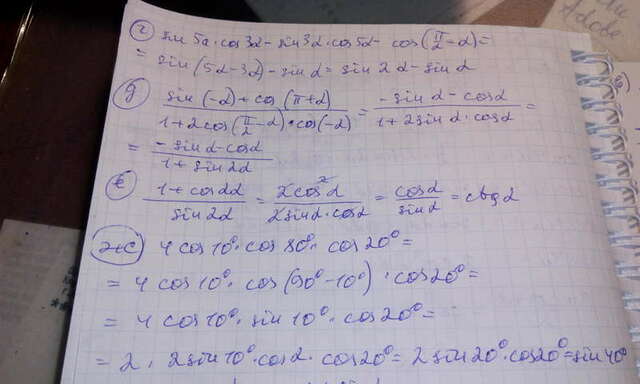 г) sin 5α·cos 3α - sin 3α·cos 5α - cos(π/2 - α) =
= sin(5α - 3α) - sin α = sin 2α - sin α
д) (sin(-α) + cos(π+α)) / (1 + 2cos(π/2 - α)·cos(-α)) = (-sin α - cos α) / (1 + 2 sin α·cos α) =
= (-sin α - cos α) / (1 + sin 2α)
е) (1 + cos 2α) / (sin 2α) = (2cos²α) / (2 sin α·cos α) = cos α / sin α = ctg α
ж) 4 cos 10°·cos 80°·cos 20° =
= 4 cos 10°·cos(90° - 10°)·cos 20° =
= 4 cos 10°·sin 10°·cos 20° =
= 2·2 sin 10°·cos α·cos 20° = 2 sin 20°·cos 20° = sin 40°